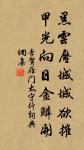 黑雲壓城城欲摧
甲光向日金鱗開
李賀雁門太守行詞典
網集